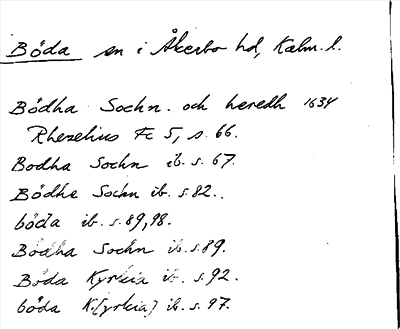 Böda sn i Åkerbo hd, Kalm. l.
Bödha Sochn. och heredh 1634
Rhezelius Fc 5, s. 66.
Bodha Sochn ib. s. 67.
Bödhe Sochn ib. s. 82.
böda ib. s. 89, 98.
Bödha Sochn ib. s. 89.
Böda Kyrkia ib. s. 92.
böda K.[yrkia] ib. s. 97.